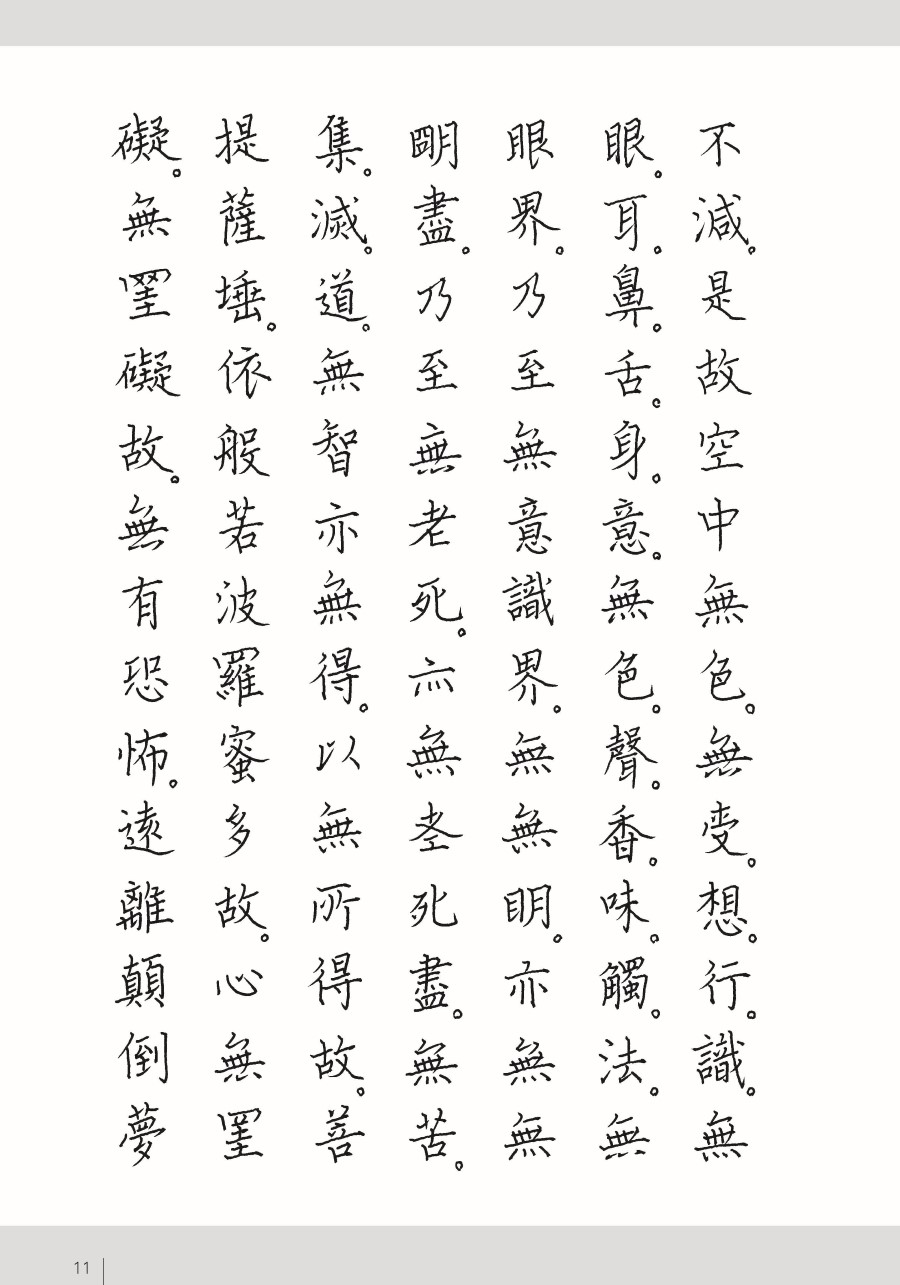 不減。是故空中無色。無受。想。行。識。無
眼。耳。鼻。舌。身。意。無色。聲。香。味。觸。法。無
眼界。乃至無意識界。無無明。亦無無
明盡。乃至無老死。亦無老死盡。無苦。
集。滅。道。無智亦無得。以無所得故。菩
提薩埵。依般若波羅蜜多故。心無罣
礙。無罣礙故。無有恐怖。遠離顛倒夢
11